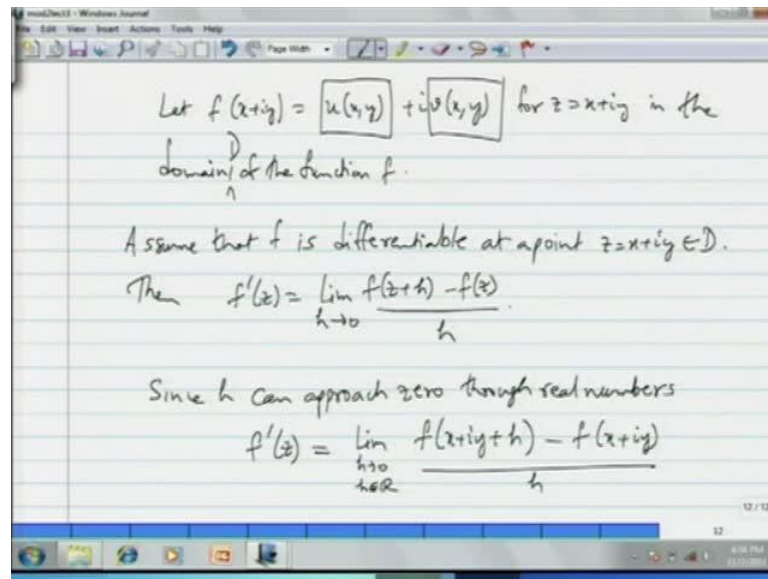 mod2lect3 - Windows Journal
File Edit View Insert Actions Tools Help
Page Width
Let f (x+iy) = u(x,y) + i v(x,y) for z=x+iy in the
domain D of the function f.
Assume that f is differentiable at a point z=x+iy ∈ D.
Then f'(z) = lim h→0 f(z+h) - f(z) / h .
Since h can approach zero through real numbers
f'(z) = lim h→0 h∈R f(x+iy+h) - f(x+iy) / h
12 / 12
12